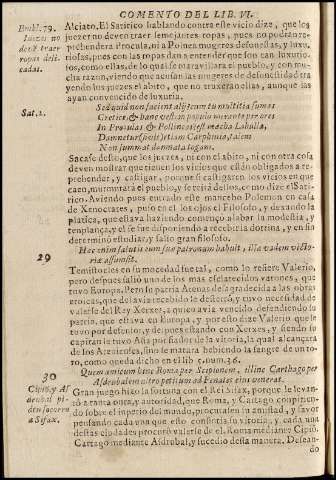 COMENTO DEL LIB. VI.
Embl. 79.
Iuezes no
deuē traer
ropas deli-
cadas.
Alciato. El Satirico hablando contra este vicio dize, que los
juezes no deuen traer semejantes ropas, pues no podran re-
prehender a Procula, ni a Polinea mugeres desonestas, y luxu-
riosas, pues con las ropas dan a entender que son tan luxurio-
sos, como ellas, de lo qual se marauillara el pueblo, y con mu-
cha razon, viendo que acusan las mugeres de desonestidad tra
yendo los juezes el abito, que no truxeran ellas, aunque las
ayan conuencido de luxuria.
Sat. 2.
Sed quid non facient alij cum tu multitia sumas
Cretice, & hanc vestem populo mirante perores
In Proculas & Pollineas? est moecha Labulla,
Damnetur si vis etiam Carphinia, talem
Non sumet damnata togam.
Sacase desto, que los juezes, ni con el abito, ni con otra cosa
deuen mostrar que tienen los vicios que estan obligados a re-
prehender, y castigar, porque si castigaren los vicios en que
caen, murmurara el pueblo, y se reira dellos, como dize el Sati-
rico. Auiendo pues entrado este mancebo Polemon en casa
de Xenocrates, puso en el los ojos el Filosofo, y dexando la
platica, que estaua haziendo començo a labar la modestia, y
templança, y el se fue disponiendo a recebir la dotrina, y en fin
determinó estudiar, y salio gran filosofo.
29
Hæc enim salutis eum suæ patronum habuit, illa vadem victo-
riæ assumsit.
Temistocles en su mocedad fue tal, como lo refiere Valerio,
pero despues salió vno de los mas esclarecidos varones, que
tuuo Europa. Pero su patria Atenas desagradecida a las obras
eroicas, que del auia recebido le desterró, y tuuo necessidad de
valerse del Rey Xerxes, a quien auia vencido defendiendo su
patria, que estaua en Europa, y por esto dize Valerio que le
tuuo por defensor, y despues estando con Xerxes, y siendo su
capitan la tuuo Asia por fiador de la vitoria, la qual alcançara
de los Atenienses, sino se matara bebiendo la sangre de vn to-
ro, como queda dicho en el lib. 5. num. 36.
30
Quem amicum hinc Roma per Scipionem, illinc Carthago per
Asdrubalem vltro petitum ad Penates eius venerat.
Cipiō, y As
drubal pi-
den socorro
a Sifax.
Gran juego hizo la fortuna con el Rey Sifax, porque le leuan-
tó a tanta onra, y autoridad, que Roma, y Cartago compitien-
do sobre el imperio del mundo, procuraron su amistad, y fauor
pensando cada vna que esto consistia su vitoria, y cada vna
destas ciudades procuró valerse de el, Roma mediante Cipió.
Cartago mediante Asdrubal, y sucedio desta manera. Dessean-
do